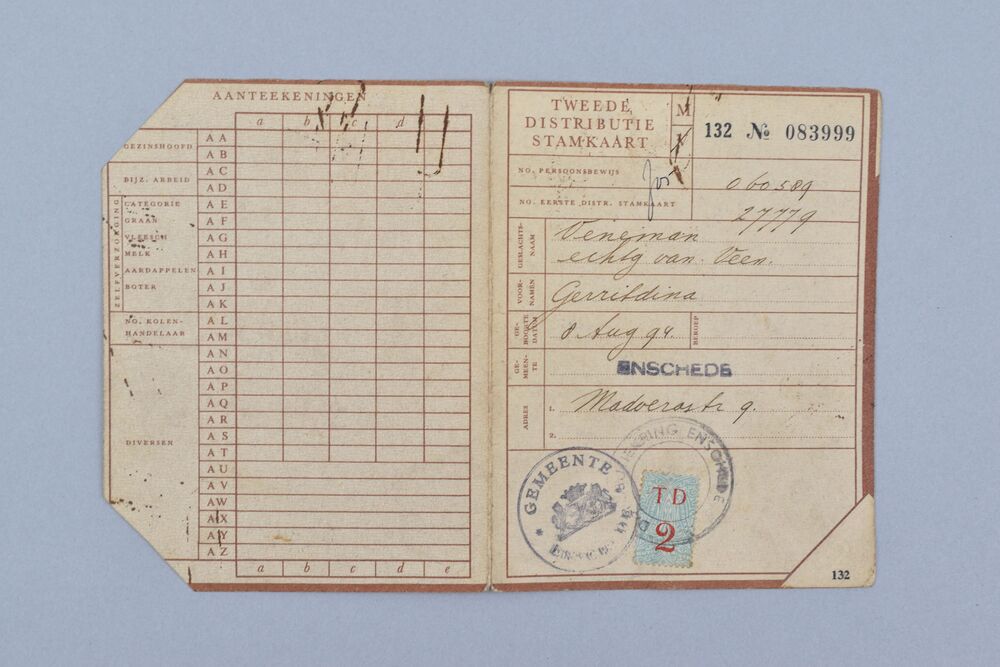 AANTEEKENINGEN
a b c d
GEZINSHOOFD
BIJZ. ARBEID
ZELFVERZORGING
CATEGORIE
GRAAN
VLEESCH
MELK
AARDAPPELEN
BOTER
NO. KOLEN-
HANDELAAR
DIVERSEN
AA
AB
AC
AD
AE
AF
AG
AH
AI
AJ
AK
AL
AM
AN
AO
AP
AQ
AR
AS
AT
AU
AV
AW
AX
AY
AZ
a b c d e
TWEEDE
DISTRIBUTIE
STAMKAART
M
132 № 083999
NO. PERSOONSBEWIJS
060589
NO. EERSTE DISTR. STAMKAART
27779
GESLACHTS-
NAAM
Veneman
echtg van Veen.
VOOR-
NAMEN
Gerritdina
GE-
BOORTE
DATUM
8 Aug 94.
BEROEP
GE-
MEEN-
TE
ENSCHEDE
ADRES
1. Madoerastr 9.
2.
GEMEENTE
ENSCHEDE
TD
2
132